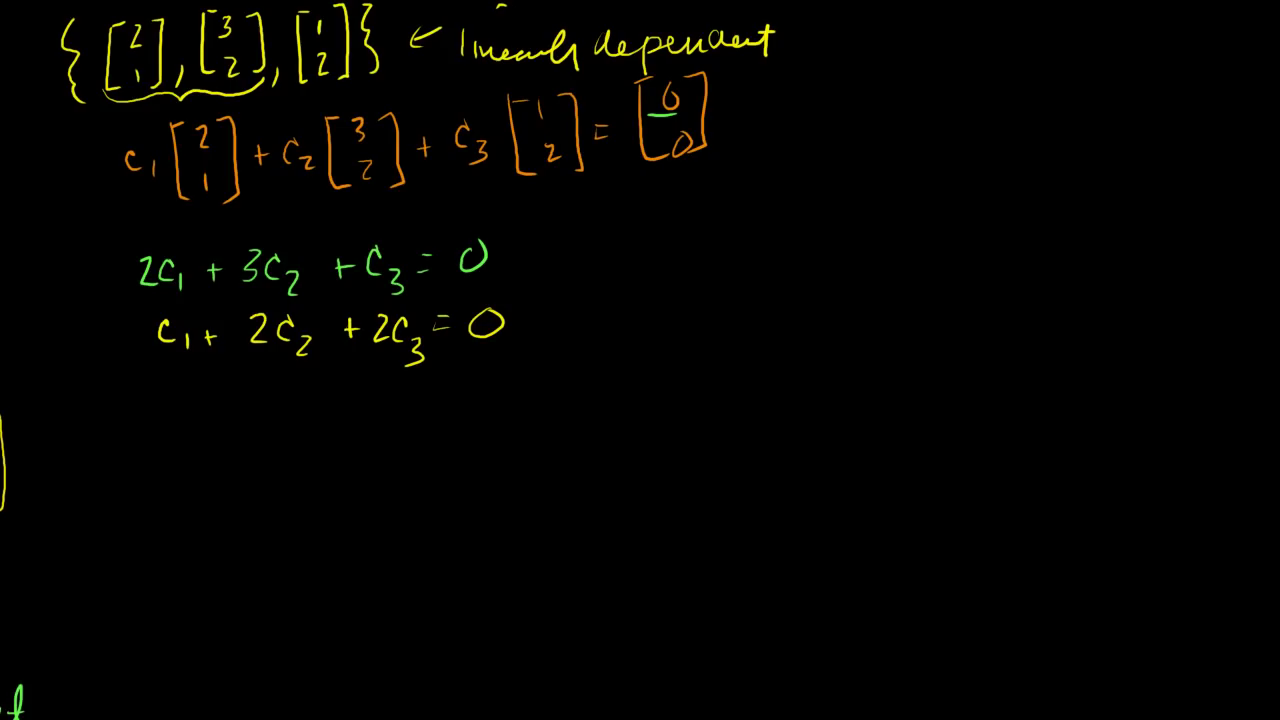 {[2 1], [3 2], [1 2]} ← linearly dependent
c₁[2 1] + c₂[3 2] + c₃[1 2] = [0 0]
2c₁ + 3c₂ + c₃ = 0
c₁ + 2c₂ + 2c₃ = 0